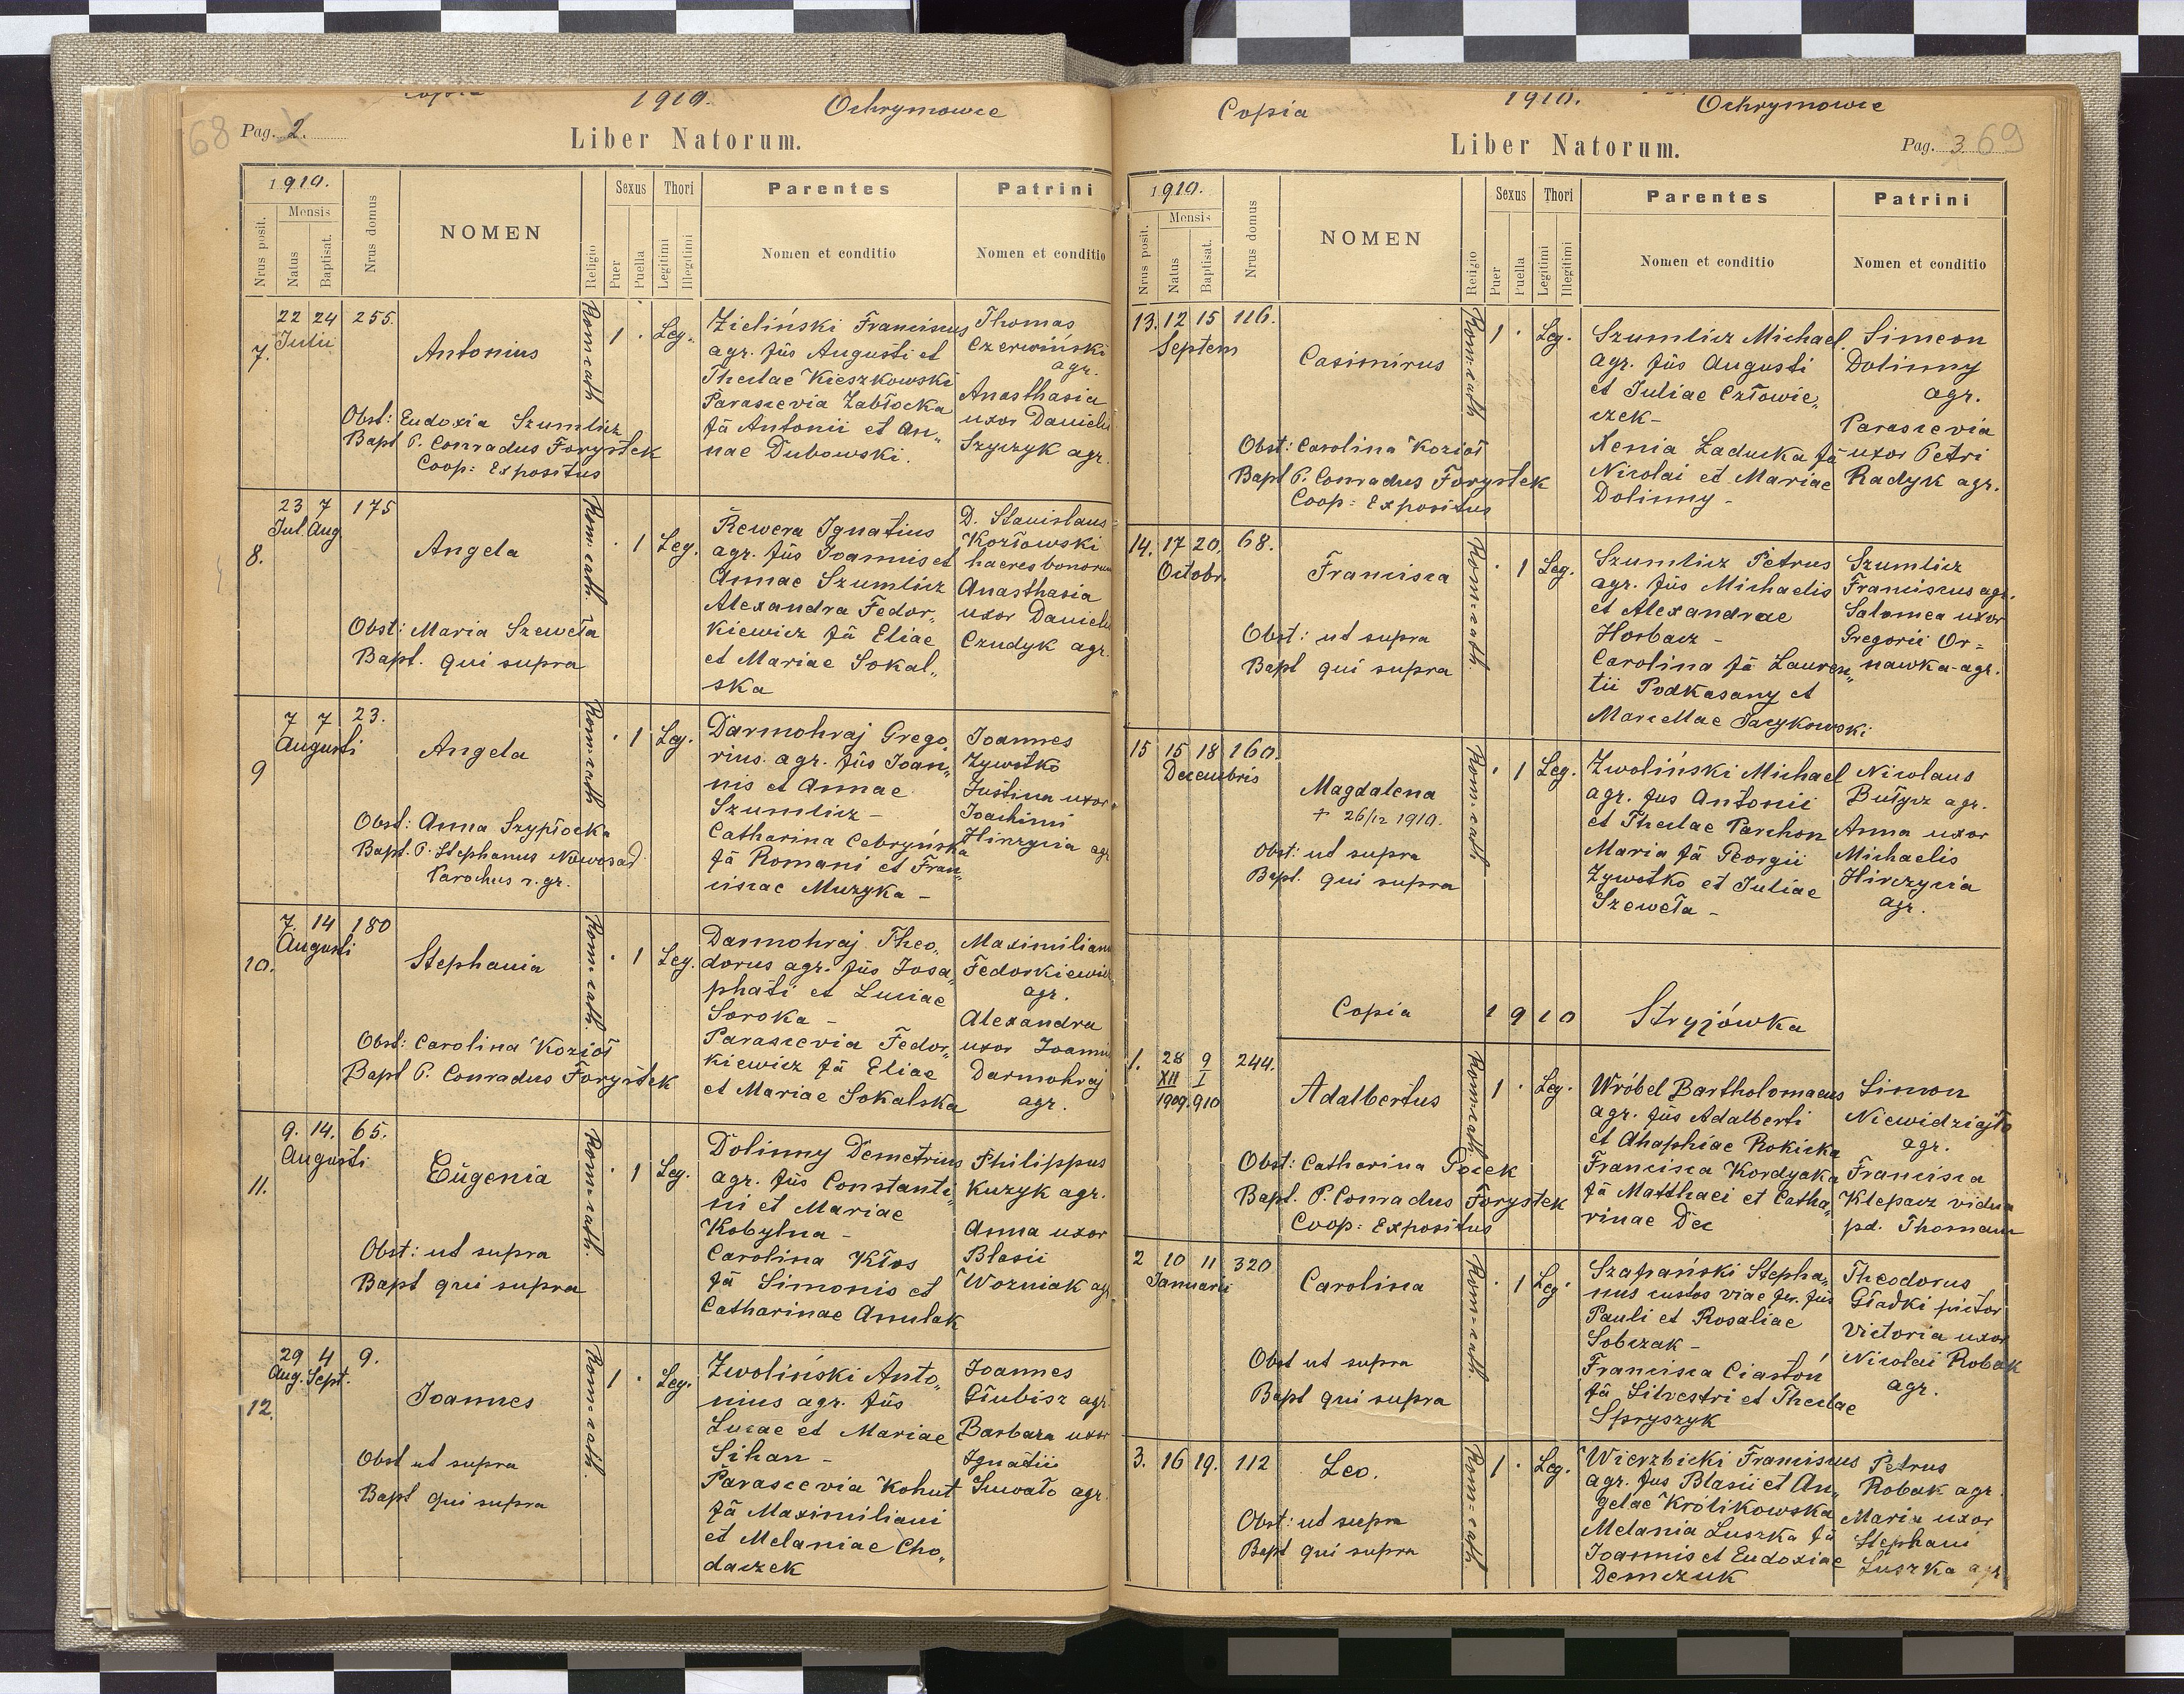 Copia 1910. Ochrymowce
68 Pag. 2.
Liber Natorum.
1910.
Nrus posit.
Mensis
Natus
Baptisat.
Nrus domus
NOMEN
Religio
Sexus
Puer
Puella
Thori
Legitimi
Illegitimi
Parentes
Nomen et conditio
Patrini
Nomen et conditio
7.
22 24 255.
Julii
Antonius
Rom: cath
1 · Leg.
Obst: Eudoxia Szumlicz
Bapt P. Conradus Forystek
Coop: Expositus
Zieliński Franciscus
agr. fius Augusti et
Theclae Kieszkowski
Parascevia Zabłocka
fa Antonii et An„
nae Dubowski.
Thomas
Czerwiński
agr.
Anasthasia
uxor Danielis
Szyczyk agr.
8.
23 7 175
Jul. Aug
Angela
Rom: cath.
· 1 Leg.
Obst: Maria Szeweła
Bapt. qui supra
Rewera Ignatius
agr. fius Joannis et
Annae Szumlicz
Alexandra Fedor„
kiewicz fa Eliae
et Mariae Sokal„
ska
D. Stanislaus
Kozłowski
haeres bonorum
Anasthasia
uxor Danielis
Czudyk agr.
9
7 7 23.
Augusti
Angela
Rom: cath
· 1 Leg.
Obst: Anna Szypłocka
Bapt. P. Stephanus Nowosad
Parochus r. gr.
Darmohraj Grego„
rius agr. fius Joan„
nis et Annae
Szumlicz -
Catharina Cebryńska
fa Romani et Fran„
ciscae Muzyka -
Joannes
Zywotko
Justina uxor
Joachimi
Hirczycia agr
10.
7. 14 180
Augusti
Stephania
Rom: cath.
· 1 Leg.
Obst: Carolina Kozioł
Bapt P. Conradus Forystek
Darmohraj Theo„
dorus agr. fius Josa„
phati et Luciae
Soroka -
Parascevia Fedor„
kiewicz fa Eliae
et Mariae Sokalska
Maximilianus
Fedorkiewicz
agr.
Alexandra
uxor Joannis
Darmohraj
agr.
11.
9. 14. 65.
Augusti
Eugenia
Rom: cath.
· 1 Leg.
Obst: ut supra
Bapt qui supra
Dolinny Demetrius
agr. fius Constanti„
ni et Mariae
Kobylna -
Carolina Kłos
fa Simonis et
Catharinae Anulak
Philippus
Kuzyk agr.
Anna uxor
Blasii
Wozniak agr
12.
29 4 9.
Aug. Sept.
Joannes
Rom: cath.
1 · Leg.
Obst ut supra
Bapt qui supra
Zwoliński Anto„
nius agr. fius
Lucae et Mariae
Sihan -
Parascevia Kohut
fa Maximiliani
et Melaniae Cho„
daczek
Joannes
Głubisz agr
Barbara uxor
Ignatii
Suwało agr.
Copia 1910. Ochrymowce
Liber Natorum.
Pag. 3. 69
1910.
Nrus posit.
Mensis
Natus
Baptisat.
Nrus domus
NOMEN
Religio
Sexus
Puer
Puella
Thori
Legitimi
Illegitimi
Parentes
Nomen et conditio
Patrini
Nomen et conditio
13. 12 15 116.
Septem
Casimirus
Rom: cath
1 · Leg.
Obst: Carolina Kozioł
Bapt P. Conradus Forystek
Coop: Expositus
Szumlicz Michael
agr. fius Augusti
et Juliae Człowie„
czek -
Xenia Laducka fa
Nicolai et Mariae
Dolinny -
Simeon
Dolinny
agr.
Parascevia
uxor Petri
Radyk agr.
14. 17 20. 68.
Octobr.
Francisca
Rom: cath.
· 1 Leg.
Obst: ut supra
Bapt qui supra
Szumlicz Petrus
agr. fius Michaelis
et Alexandrae
Horbacz -
Carolina fa Lauren„
tii Podkasany et
Marcellae Jacykowski
Szumlicz
Franciscus agr.
Salomea uxor
Gregorii Or=
nawka agr.
15 15 18 160.
Decembris
Magdalena
+ 26/12 1910.
Rom: cath
· 1 Leg.
Obst: ut supra
Bapt. qui supra
Zwoliński Michael
agr. fus Antonii
et Theclae Parchon
Maria fa Georgii
Zywotko et Juliae
Szeweła -
Nicolaus
Bułycz agr.
Anna uxor
Michaelis
Hirczycia
agr.
Copia 1910 Stryjówka
1. 28 9 244.
XII I
1909. 910
Adalbertus
Rom: cath.
1 · Leg.
Obst: Catharina Pocek
Bapt. P. Conradus Forystek
Coop: Expositus
Wróbel Bartholomaeus
agr. fius Adalberti
et Ahaphiae Rokicka
Francisca Kordyaka
fa Matthaei et Catha„
rinae Dec
Simon
Niewidziajło
agr.
Francisca
Klepacz vidua
pd. Thomam
2 10 11 320
Januarii
Carolina
Rom: cath.
· 1 Leg.
Obst ut supra
Bapt qui supra
Szapański Stepha„
nus custos viae fer. fius
Pauli et Rosaliae
Sobczak -
Francisca Ciastoń
fa Silvestri et Theclae
Spryszyk
Theodorus
Gładki pictor
Victoria uxor
Nicolai Robak
agr.
3. 16 19. 112
Leo.
Rom: cath.
1 · Leg.
Obst: ut supra
Bapt qui supra
Wierzbicki Franciscus
agr. fus Blasii et An„
gelae Królikowska
Melania Luszka fa
Joannis et Eudoxiae
Demczuk
Petrus
Robak agr.
Maria uxor
Stephani
Łuszka agr